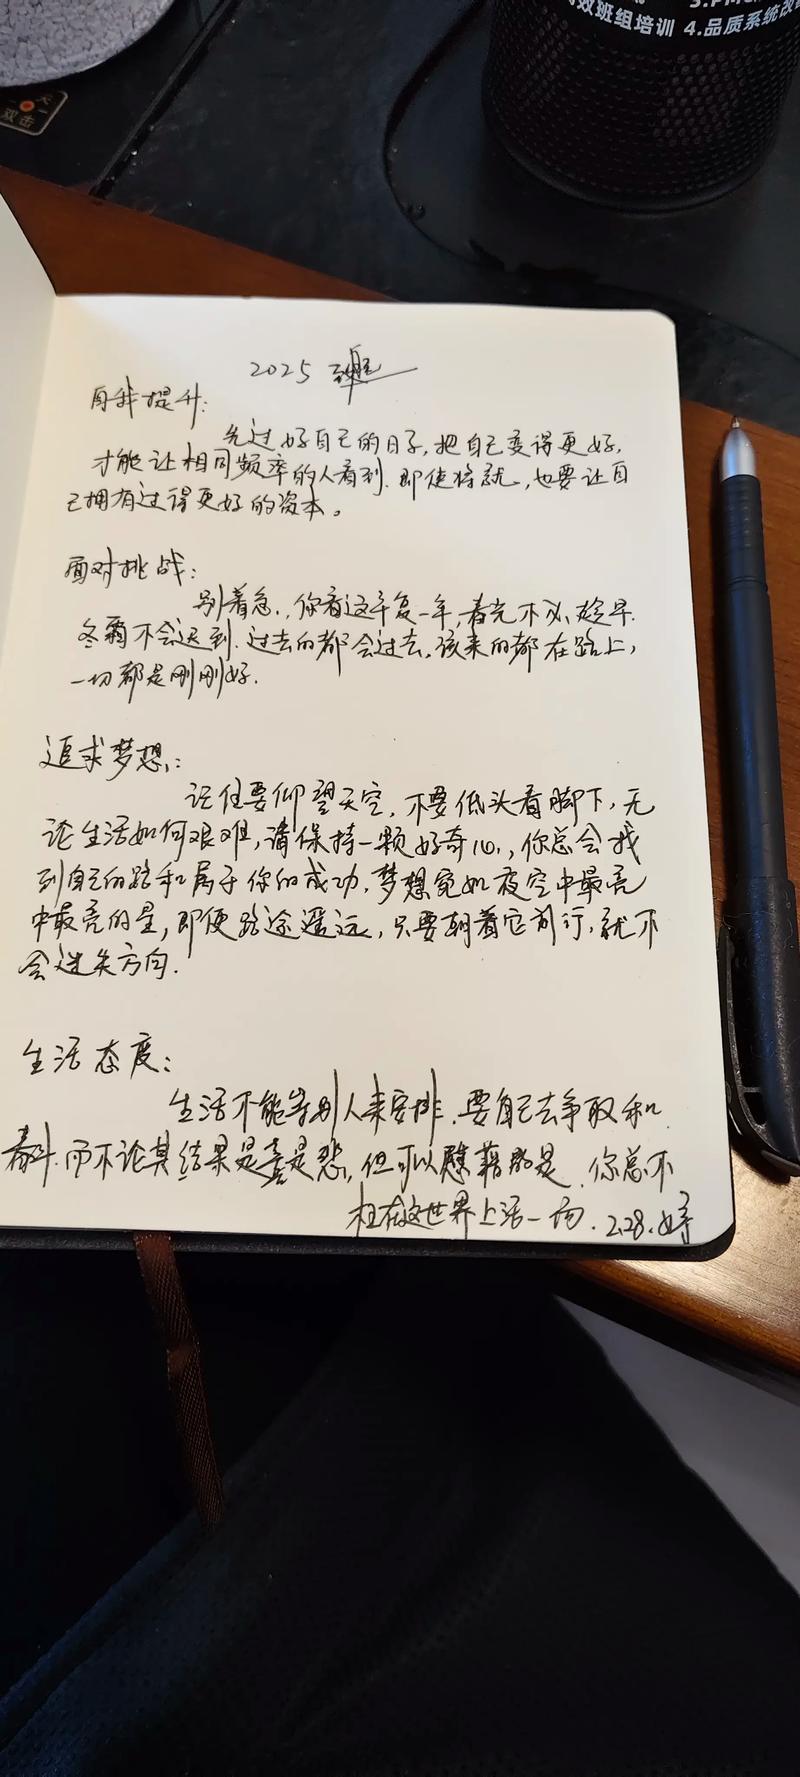 效班组培训 4.品质系统改
双击
2025
自我提升:
先过好自己的日子,把自己变得更好,
才能让相同频率的人看到.即使将就,也要让自
己拥有过得更好的资本。
面对挑战:
别着急.,你看这年复一年,春光不必趁早.
冬霜不会迟到.过去的都会过去,该来的都在路上,
一切都是刚刚好.
追求梦想,:
记住要仰望天空,不要低头看脚下,无
论生活如何艰难,请保持一颗好奇心,,你总会找
到自己的路和属于你的成功,梦想宛如夜空中最亮
中最亮的星,即便路途遥远,只要朝着它前行,就不
会迷失方向.
生活态度:
生活不能等别人来安排.要自己去争取和
奋斗.而不论其结果是喜是悲,但可以慰藉的是.你总不
枉在这世界上活一场.2.28.